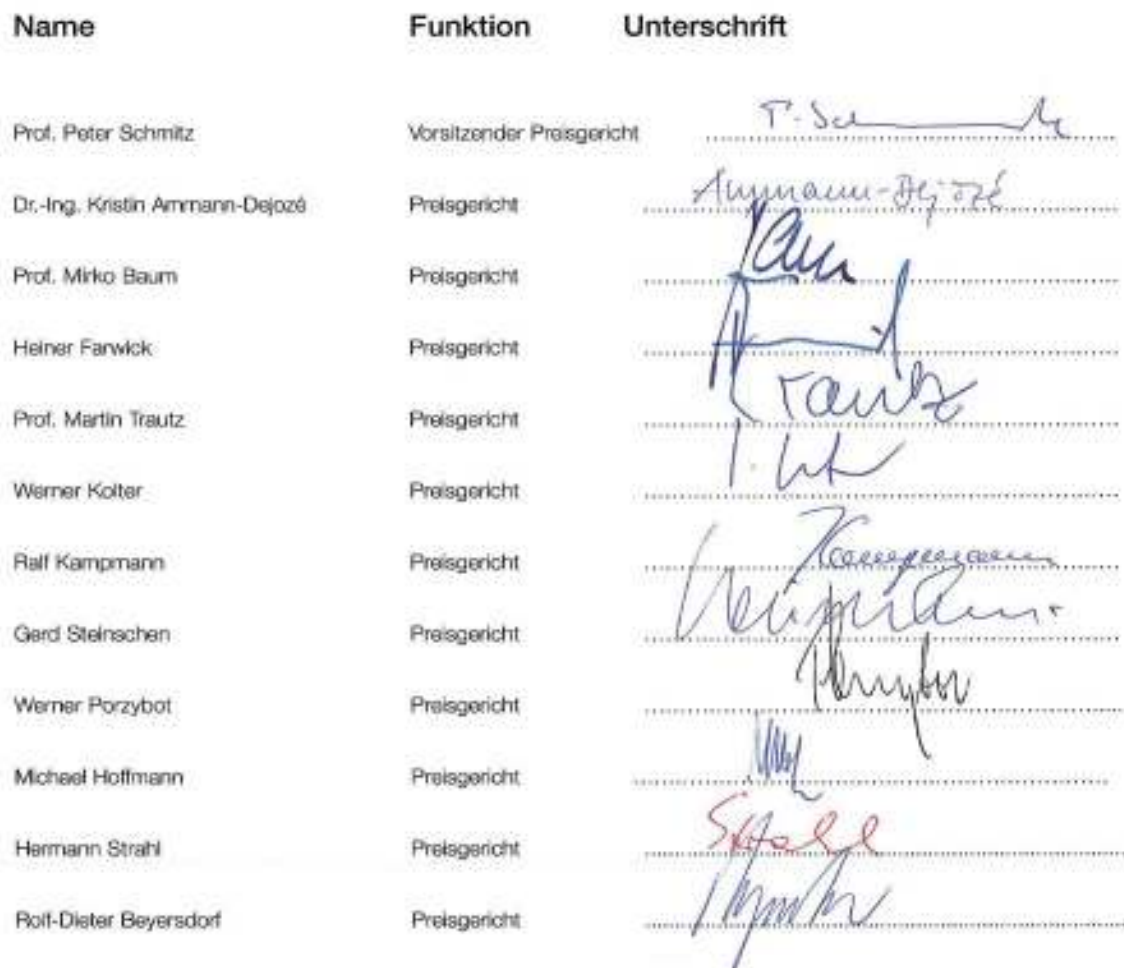 Name Funktion Unterschrift
Prof. Peter Schmitz Vorsitzender Preisgericht P. Sch
Dr.-Ing. Kristin Ammann-Dejozé Preisgericht Ammann-Dejozé
Prof. Mirko Baum Preisgericht
Heiner Farwick Preisgericht
Prof. Martin Trautz Preisgericht Trautz
Werner Kolter Preisgericht
Ralf Kampmann Preisgericht Kampmann
Gerd Steinschen Preisgericht
Werner Porzybot Preisgericht
Michael Hoffmann Preisgericht
Hermann Strahl Preisgericht Strahl
Rolf-Dieter Beyersdorf Preisgericht